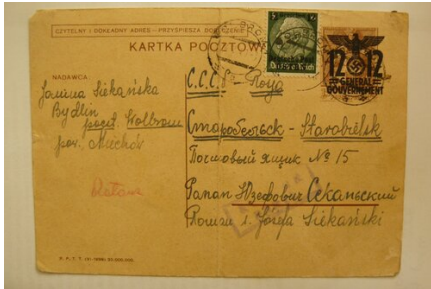 CZYTELNY I DOKŁADNY ADRES - PRZYŚPIESZA DORĘCZENIE
KARTKA POCZTOWA
Deutsches Reich
12 12
GENERAL
GOUVERNEMENT
NADAWCA:
Janina Siekańska
Bydlin
poczt. Wolbrom
pow. Miechów
С.С.С.Р.
Старобельск - Starobielsk
Почтовый ящик № 15
Роман Юзефович Секаньский
Roman s. Józefa Siekański